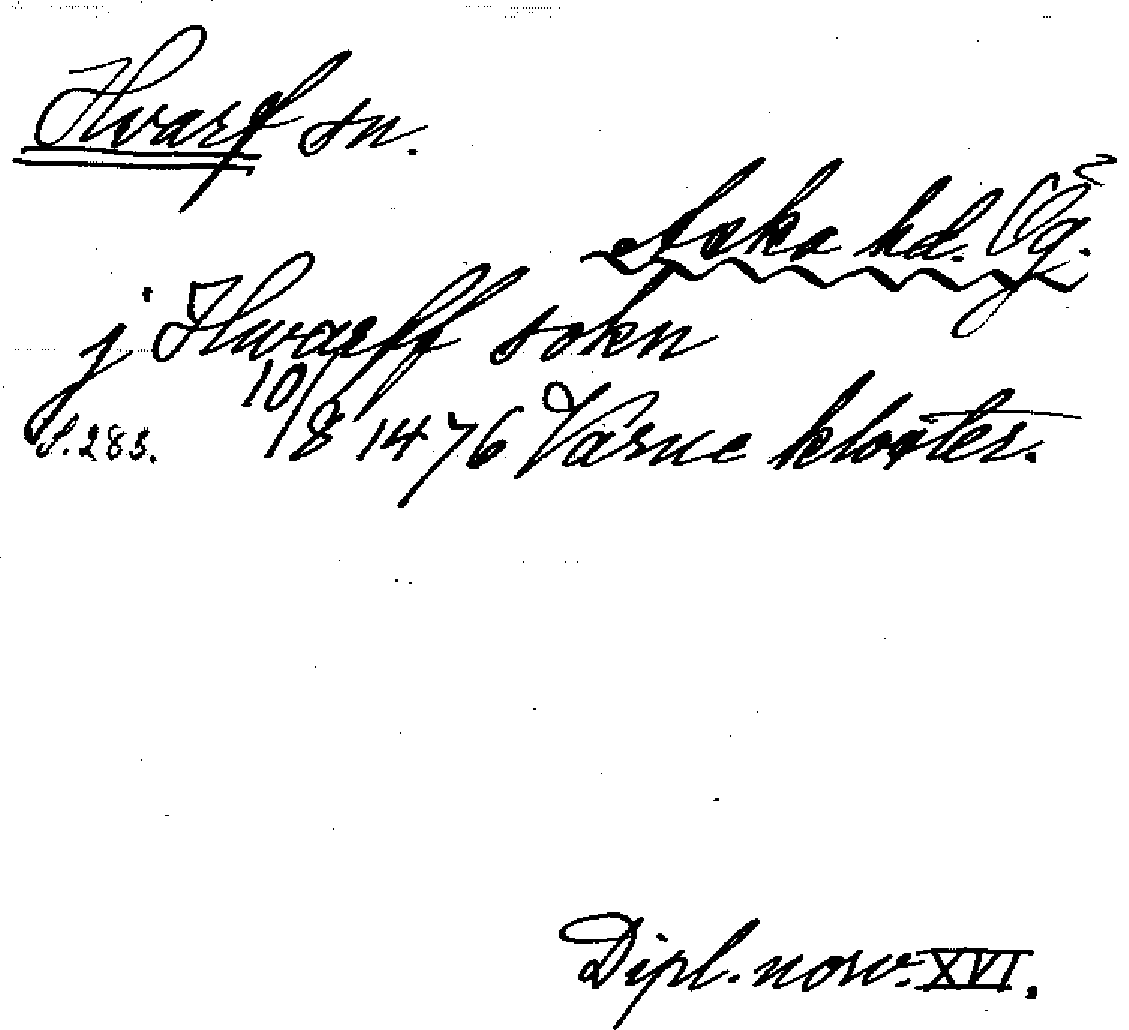 Hvarf sn.
Aska hd. Ög.
j Hwarff sokn
S. 283. 10/8 1476 Varne kloster.
Dipl. norv. XVI.